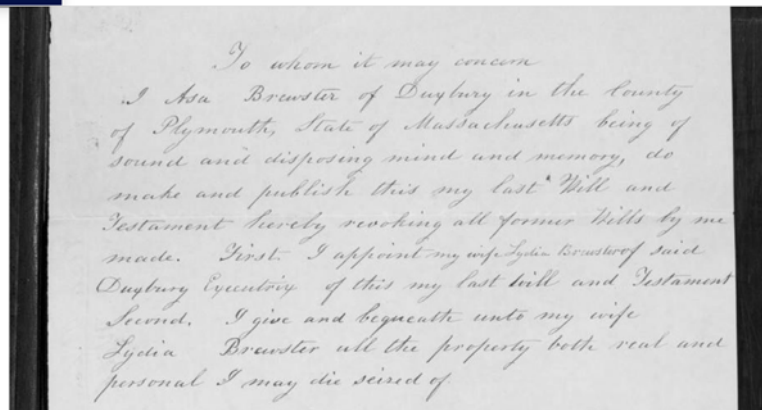 To whom it may concern
I Asa Brewster of Duxbury in the County
of Plymouth, State of Massachusetts being of
sound and disposing mind and memory, do
make and publish this my last Will and
Testament hereby revoking all former Wills by me
made. First. I appoint my wife Lydia Brewster of said
Duxbury Executrix of this my last will and Testament
Second. I give and bequeath unto my wife
Lydia Brewster all the property both real and
personal I may die seized of.